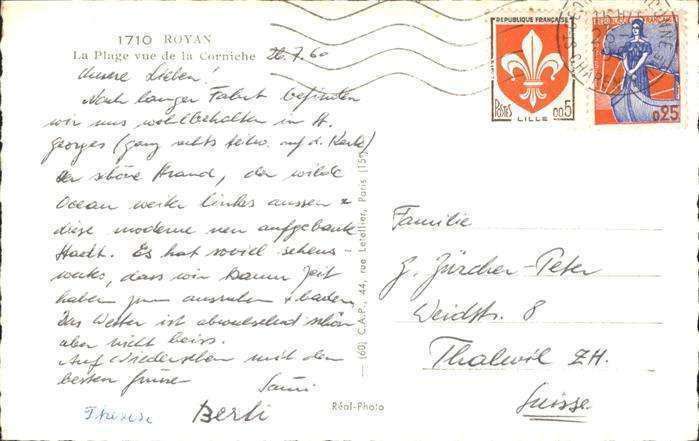 1710 ROYAN
La Plage vue de la Corniche 22.7.60
Unsere Lieben!
Nach langer Fahrt befinden
wir uns wohlbehalten in St.
Georges (ganz rechts teilw. auf d. Karte)
Der schöne Strand, der wilde
Ocean weiter links aussen &
diese moderne neu aufgebaute
Stadt. Es hat soviel sehens-
wertes, dass wir kaum Zeit
haben zum ausruhen & baden.
Das Wetter ist abwechselnd schön
aber nicht heiss.
Auf Wiedersehen mit den
besten Grüssen
Therese Berti
REPUBLIQUE FRANÇAISE
POSTES 0.05
LILLE
0.25
(60) C.A.P., 44, rue Letellier, Paris (15e)
Réal-Photo
Familie
G. Zürcher-Peter
Weidstr. 8
Thalwil ZH.
Suisse.